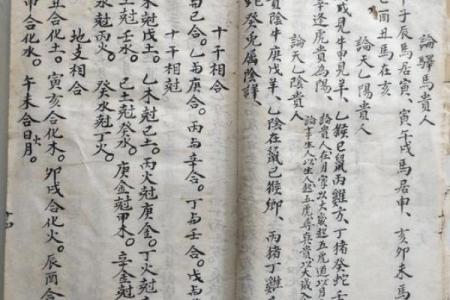 論驛馬貴人
子辰馬居寅、寅午戌馬居申、亥卯未馬
酉丑馬在亥
論天乙陽貴人
戊見牛甲見羊、乙猴己鼠丙雞方、丁猪癸蛇壬
辛逢虎貴為陽、論貴人在月家以大歲起五虎遁
論天乙陰貴人
貴陰牛庚戊羊、乙陰在鼠己猴鄉、丙猪丁雞
蛇癸兔屬陰詳、
十干相合
己合。乙与庚合。丙与辛合。丁与壬合。戊与
十干相尅
尅戊土。乙木尅己土。丙火尅庚金。丁火尅
土尅壬水。己土尅癸水。庚金尅甲木。辛金尅
尅丙火。癸水尅丁火。
地支相合
丑合化土。寅亥合化木。卯戌合化火。辰酉合
申合化水。午未合火日月。